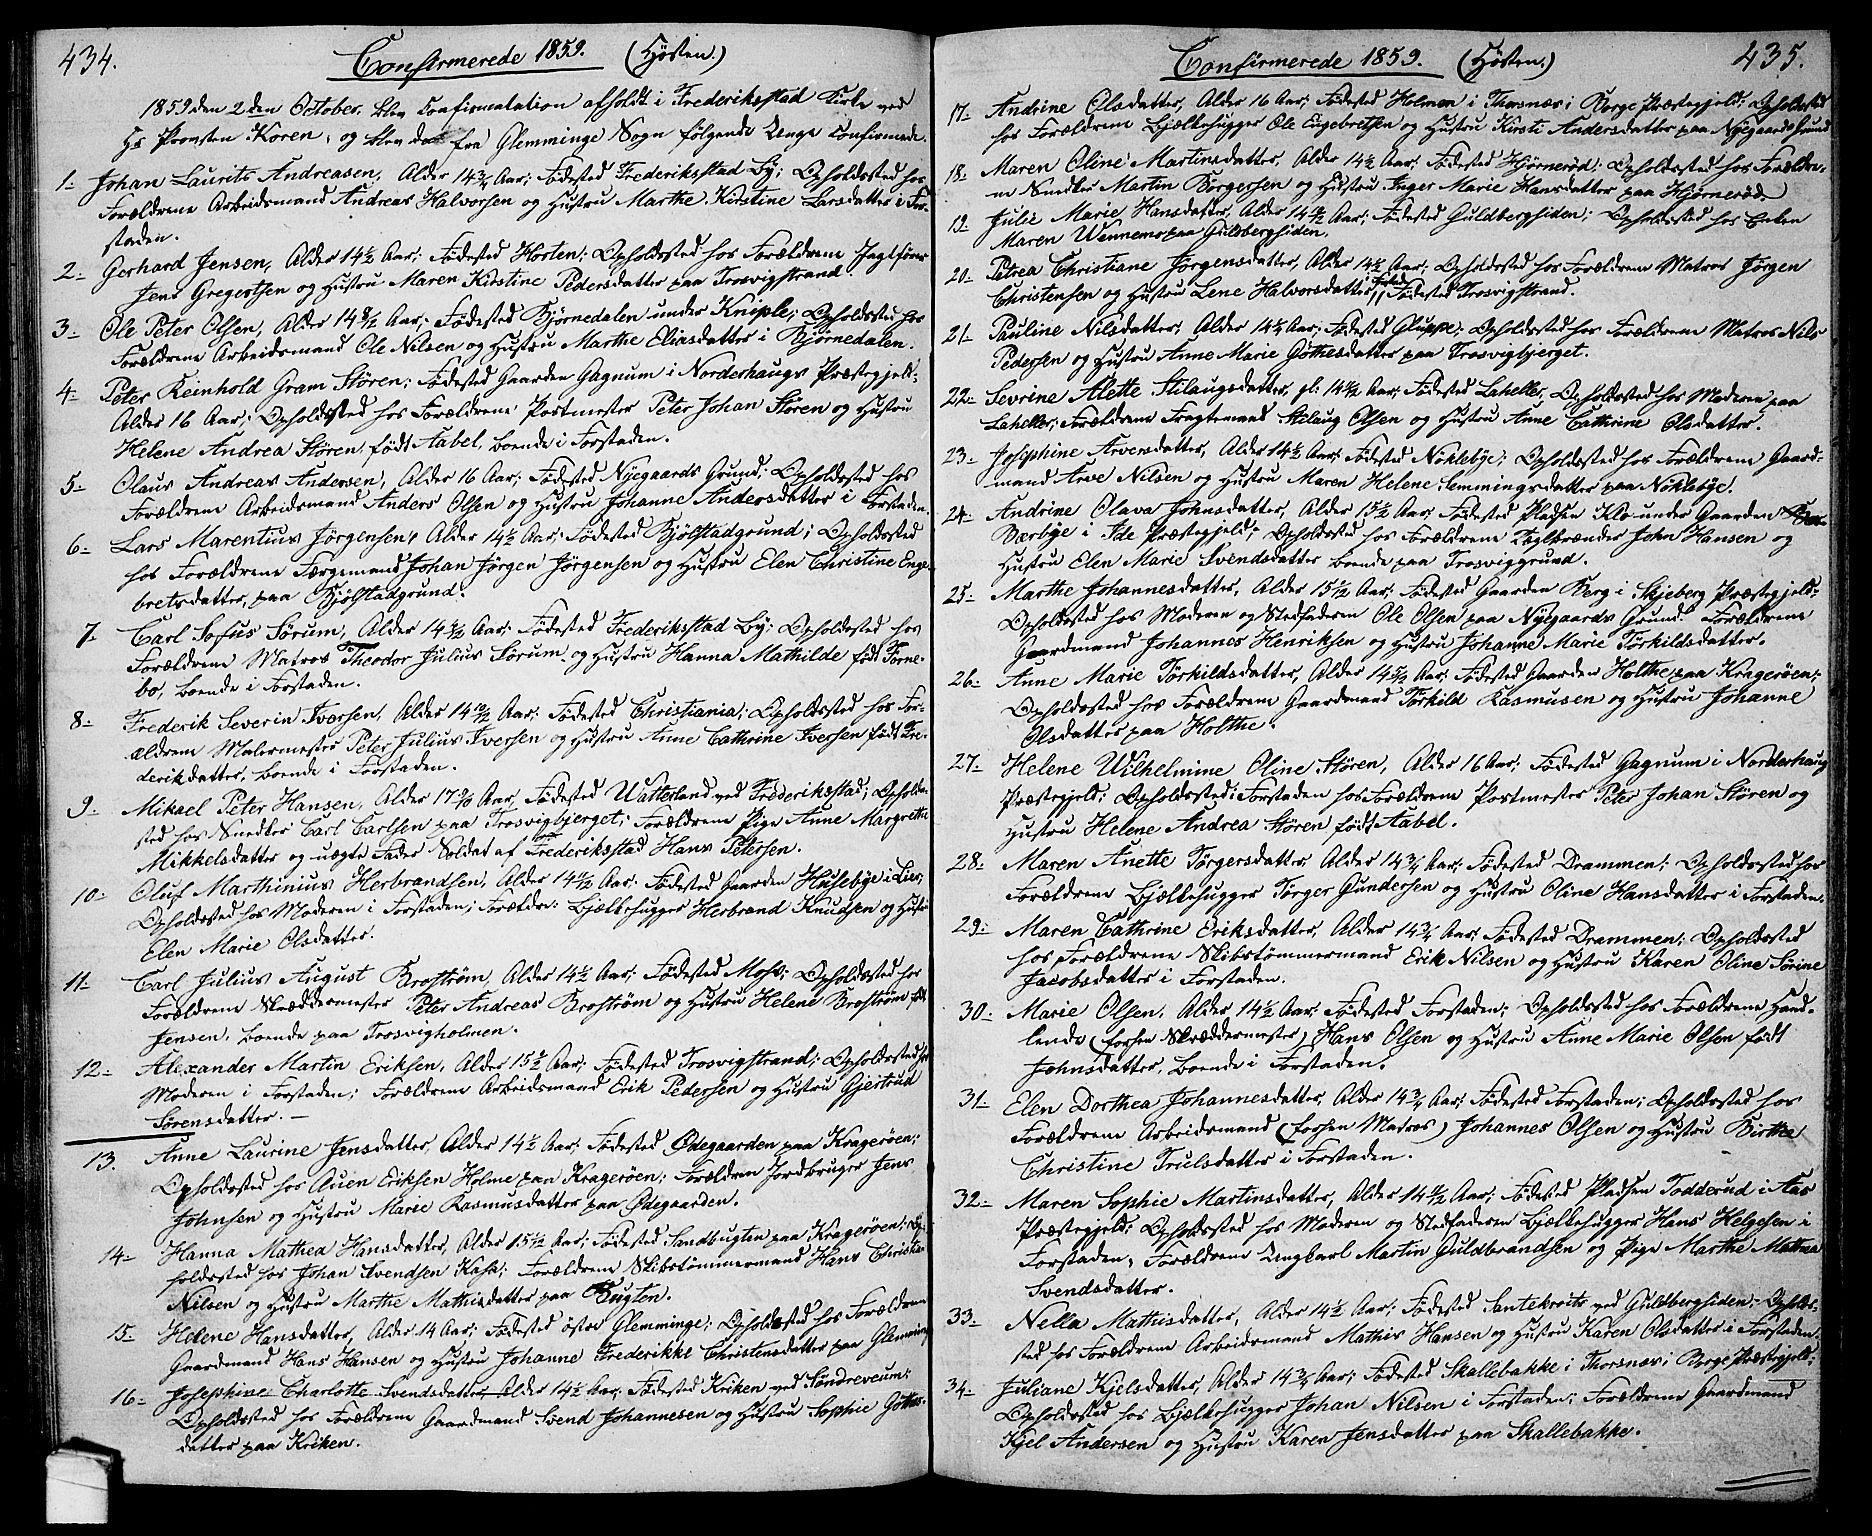 434.
Confirmerede 1859. (Høsten.)
1859 den 2den October, blev Confirmatation afholdt i Frederikstad Kirke ved
Hr Provsten Koren, og blev da fra Glemminge Sogn følgende Unge Confirmerede.
1. Johan Laurits Andreasen, Alder 14¾ Aar; Fødested Frederiksstad By; Opholdssted hos
Forældrene Arbeidsmand Andreas Halvorsen og Hustru Marthe Kirstine Larsdatter i For-
staden.
2. Gerhard Jensen, Alder 14½ Aar; Fødested Horten; Opholdssted hos Forældrene
Jens Gregertsen og Hustru Maren Kirstine Pedersdatter paa Trosvigstrand.
3. Ole Peter Olsen, Alder 14 8/12 Aar; Fødested Bjørnedalen under Kniple; Opholdssted hos
Forældrene Arbeidsmand Ole Nilsen og Hustru Marthe Eliasdatter i Bjørnedalen.
4. Peter Reinhold Gram Støren; Fødested Gaarden Gagnum i Norderhaugs Præstegjeld;
Alder 16 Aar; Opholdssted hos Forældrene Postmester Peter Johan Støren og Hustru
Helene Andrea Støren, født Aabel, boende i Forstaden.
5. Olaus Andreas Andersen, Alder 16 Aar; Fødested Nyegaards Grund; Opholdssted hos
Forældrene Arbeidsmand Anders Olsen og Hustru Johanne Andersdatter i Forstaden.
6. Lars Marentius Jørgensen, Alder 14½ Aar; Fødested Bjølstadgrund; Opholdssted
hos Forældrene Færgemand Johan Jørgen Jørgensen og Hustru Elen Christine Enge-
bretsdatter, paa Bjølstadgrund.
7. Carl Sofus Sørum, Alder 14 Aar; Fødested Frederiksstad By; Opholdssted hos
Forældrene Matros Theodor Julius Sørum og Hustru Hanna Mathilde født Torne-
bo, boende i Forstaden.
8. Frederik Severin Iversen, Alder 14 Aar; Fødested Christiania; Opholdssted hos For-
ældrene Malermester Peter Julius Iversen og Hustru Anne Cathrine Iversen født Fre-
derikdatter, boende i Forstaden.
9. Mikael Peter Hansen, Alder 17 Aar, Fødested Watterland ved Frederiksstad; Opholds-
sted hos Snedker Carl Carlsen paa Trosvigbjerget; Forældrene Pige Anne Margrethe
Mikkelsdatter og uægte Fader Soldat af Frederiksstad Hans Petersen.
10. Oluf Marthinius Herbrandsen, Alder 14 Aar. Fødested Gaarden Husebye i Lier;
Opholdssted hos Moderen i Forstaden; Forældre: Bjelkehugger Herbrand Knudsen og Hustru
Elen Marie Olsdatter.
11. Carl Julius August Broström, Alder 14½ Aar; Fødested Moss; Opholdssted hos
Forældrene Skræddermester Peter Andreas Broström og Hustru Helene Broström født
Jensen, boende paa Trosvigholmen.
12. Alexander Martin Eriksen, Alder 15 Aar; Fødested Trosvigstrand; Opholdssted hos
Moderen i Forstaden; Forældrene Arbeidsmand Erik Pedersen og Hustru Gjertrud
Sørensdatter.
13. Anne Laurine Jensdatter, Alder 14½ Aar; Fødested Ødegaarden paa Kragerøen;
Opholdssted hos Auen Eriksen Holme paa Kragerøen; Forældren Jordbruger Jens
Johnsen og Hustru Marie Rasmusdatter paa Ødegaarden.
14. Hanna Mathea Hansdatter, Alder 15 Aar; Fødested Sandbugten paa Kragerøen; Op-
holdssted hos Johan Svendsen Kasa; Forældrene Skibstømmermand Hans Christian
Nilsen og Hustru Marthe Mathisdatter paa Bugten.
15. Helene Hansdatter, Alder 14 Aar; Fødested østre Glemminge; Opholdssted hos Forældrene
Gaardmand Hans Hansen og Hustru Johanne Frederikke Christensdatter paa Glemminge
16. Josephine Charlotte Svendsdatter Alder 14½ Aar, Fødested Kriken ved Søndreveum;
Opholdssted hos Forældrene Gaardmand Svend Johannesen og Hustru Sophie Gothes-
datter paa Kriken.
Confirmerede 1859. (Høsten.)
435.
17. Andrine Olsdatter, Alder 16 Aar; Fødested Holmen i Thorsnæs i Borge Præstegjeld; Opholdssted
hos Forældrene Bjelkehugger Ole Engebretsen og Hustru Kirsti Andersdatter paa Nyegaards Grund
18. Maren Oline Martinsdatter, Alder 14½ Aar; Fødested Hjørnerød; Opholdssted hos Forældre-
ne Snedker Martin Borgersen og Hustru Inger Marie Hansdatter paa Hjørnerød.
19. Julie Marie Hansdatter, Alder 14 Aar; Fødested Guldbergsiden; Opholdssted hos Enken
Maren Wennemo paa Guldbergsiden.
20. Petrea Christiane Jørgensdatter, Alder 14½ Aar; Opholdssted hos Forældrene Matros Jørgen
Christensen og Hustru Lene Halvorsdatter; Fødested Trosvigstrand.
21. Pauline Nilsdatter, Alder 14½ Aar; Fødested Gluppe; Opholdssted hos Forældrene Matros Nils
Pedersen og Hustru Anne Marie Gøthesdatter paa Trosvigbjerget.
22. Sevrine Alette Stilaugsdatter, gl. 14 Aar; Fødested Lahelle; Opholdssted hos Moderen paa
Lahelle; Forældrene Fragtemand Stelaug Olsen og Hustru Anne Cathrine Olsdatter.
23. Josephine Arvesdatter, Alder 14½ Aar; Fødested Nøklebye; Opholdssted hos Forældrene Gaard-
mand Arve Nilsen og Hustru Maren Helene Hemmingsdatter paa Nøklebye.
24. Andrine Olava Johnsdatter, Alder 15½ Aar Fødested Pladsen Klo under Gaarden
Berbye i Ide Præstegjeld; Opholdssted hos Forældrene Teglbrænder John Hansen og
Hustru Elen Marie Svendsdatter boende paa Trosviggrund.
25. Marthe Johannesdatter, Alder 15½ Aar; Fødested Gaarden Berg i Skjeberg Præstegjeld;
Opholdssted hos Moderen og Stedfaderen Ole Olsen paa Nyegaards Grund. Forældrene
Gaardmand Johannes Henriksen og Hustru Johanne Marie Törkildsdatter.
26. Anne Marie Törkildsdatter, Alder 14 Aar; Fødested Gaarden Holthe paa Kragerøen;
Opholdssted hos Forældrene Gaardmand Törkild Rasmusen og Hustru Johanne
Olsdatter paa Holthe.
27. Helene Wilhelmine Oline Støren, Alder 16 Aar; Fødested Gagnum i Norderhaug
Præstegjeld; Opholdssted i Forstaden hos Forældrene Postmester Peter Johan Støren og
Hustru Helene Andrea Støren født Aabel.
28. Maren Anette Törgersdatter Alder 14¾ Aar; Fødested Drammen; Opholdssted hos
Forældrene Bjelkehugger Törger Gundersen og Hustru Oline Hansdatter i Forstaden.
29. Maren Cathrine Eriksdatter, Alder 14¾ Aar; Fødested Drammen; Opholdssted
hos Forældrene Skibstømmermand Erik Nilsen og Hustru Karen Oline Sørine
Jacobsdatter i Forstaden.
30. Marie Olsen. Alder 14½ Aar; Fødested Forstaden; Opholdssted hos Forældrene Hand-
lende (forhen Skræddermester) Hans Olsen og Hustru Anne Marie Olsen født
Johnsdatter, boende i Forstaden.
31. Elen Dorthea Johannesdatter, Alder 14¾ Aar; Fødested Forstaden; Opholdssted hos
Forældrene Arbeidsmand (forhen Matros) Johannes Olsen og Hustru Birthe
Christine Trulsdatter i Forstaden.
32. Maren Sophie Martinsdatter, Alder 14 Aar; Fødested Pladsen Todderud i Aas
Præstegjeld; Opholdssted hos Moderen og Stedfaderen Bjelkehugger Hans Helgesen i
Forstaden; Forældrene Ungkarl Martin Guldbrandsen og Pige Marthe Mathea
Svendsdatter.
33. Nella Mathisdatter, Alder 14½ Aar; Fødested Santekroits ved Guldbergsiden; Opholds-
sted hos Forældrene Arbeidsmand Mathis Hansen og Hustru Karen Olsdatter i Forstaden.
34. Juliane Kjelsdatter, Alder 14¾ Aar; Fødested Skallebakke i Thorsnæs i Borge Præstegjeld;
Opholdssted hos Bjelkehugger Johan Nilsen i Forstaden; Forældrene Gaardmand
Kjel Andersen og Hustru Karen Jensdatter paa Skallebakke.